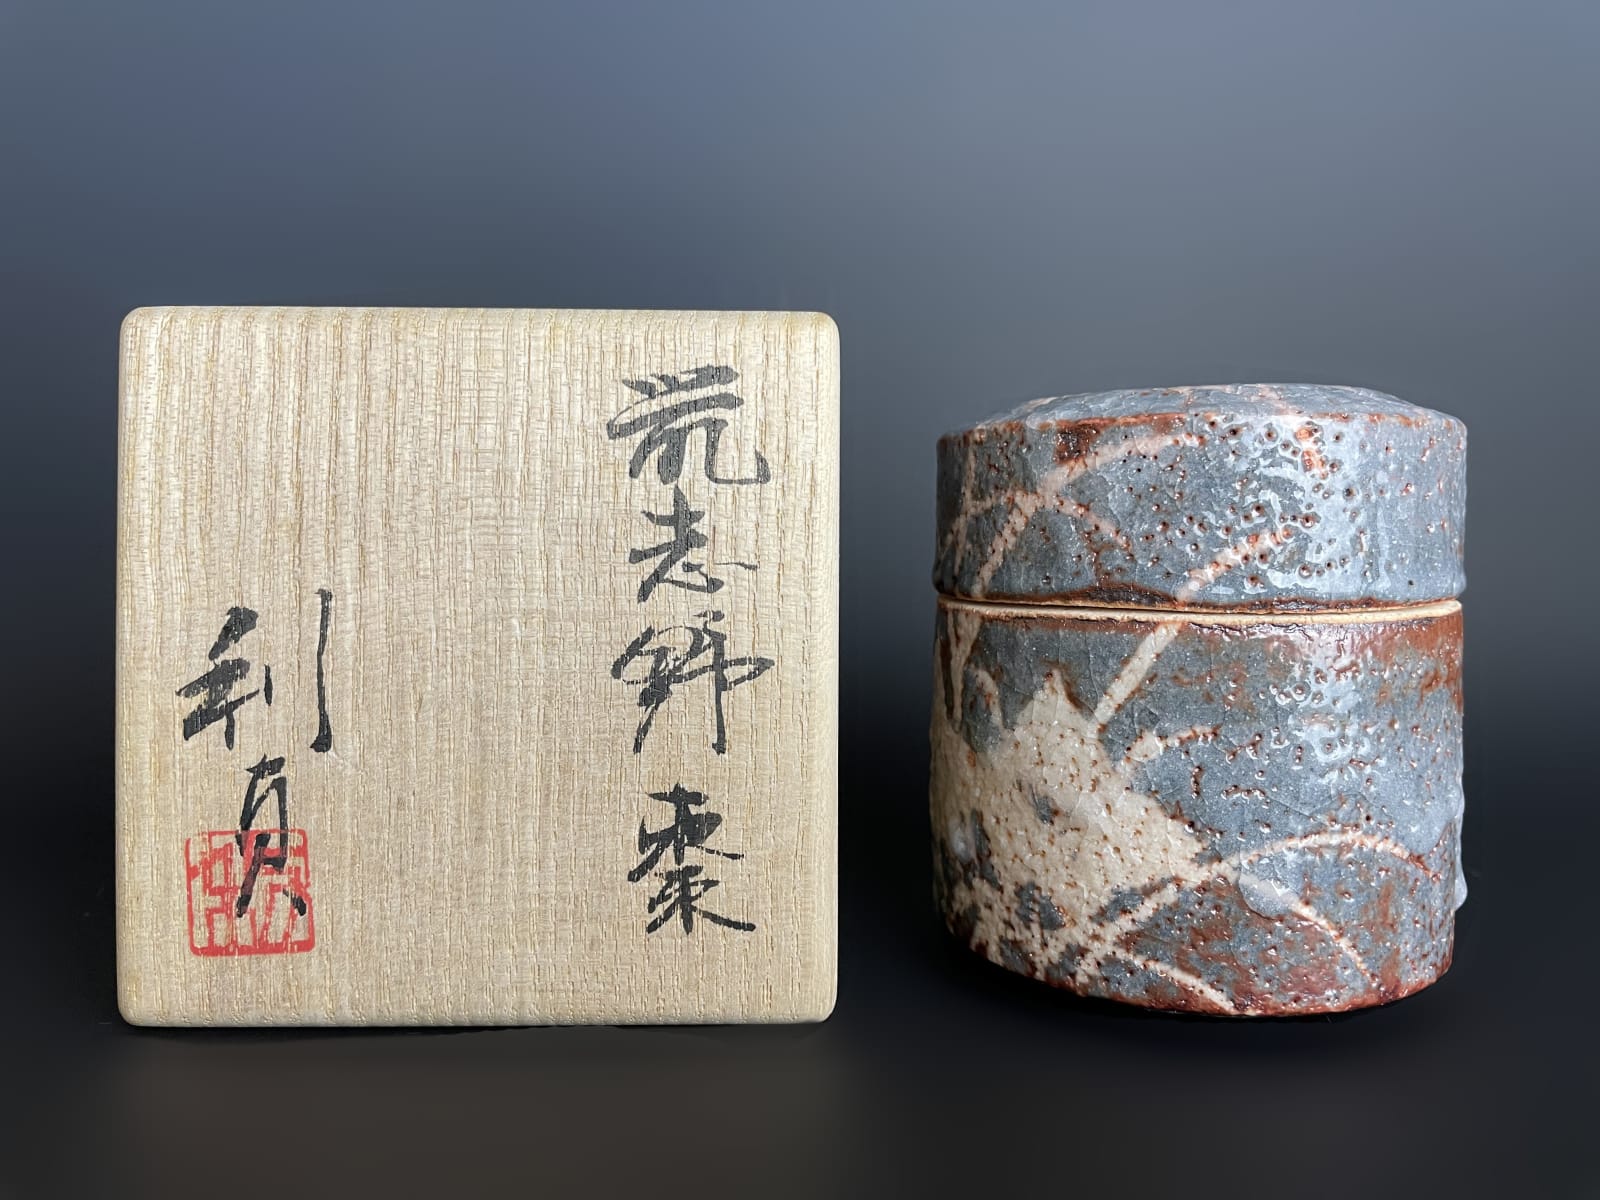 鼠志野 棗
利貞